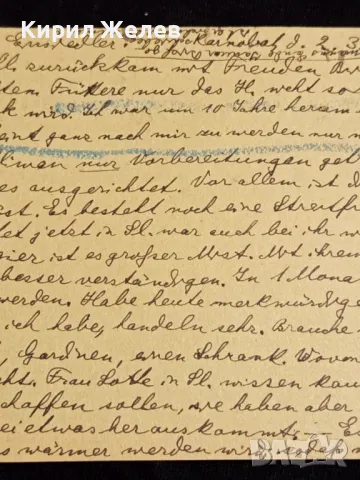 Кирил Желев
Karnobat, d. 2. 3
Sl. zurückkam mt Freuden
nur das Sl. weht so
wird. Ich war um 10 Jahre herum
ent ganz nach mir zu werden nur
liwan nur Vorbereitungen get
es ausgerichtet. Vor allem ist d
est. Es besteht noch eine Streitf
det jetzt in Sl. war auch bei ihr w
ier ist es großer Mist. Mt ihrem
besser verständigen. In 1 Mona
werden. Habe heute merkwürdige
ich habe, handeln sehr. Brauche
Gardinen, einen Schrank. Wovon
cht. Frau Lotte in Sl. wissen kau
chaffen sollen, sie haben aber
ei etwas herauskommt. — Es
s wärmer werden wird, sodaß
bazar